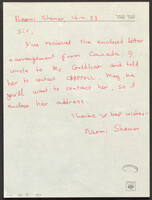 Naomi Shemer, 16.11.83
Sir,
I've received the enclosed letter
& arrangement from Canada. I
wrote to Ms Goldhar and told
her to contact CHAPPELL. May be
you'd want to contact her, so I
enclose her address.
Thanks & best wishes
Naomi Shemer